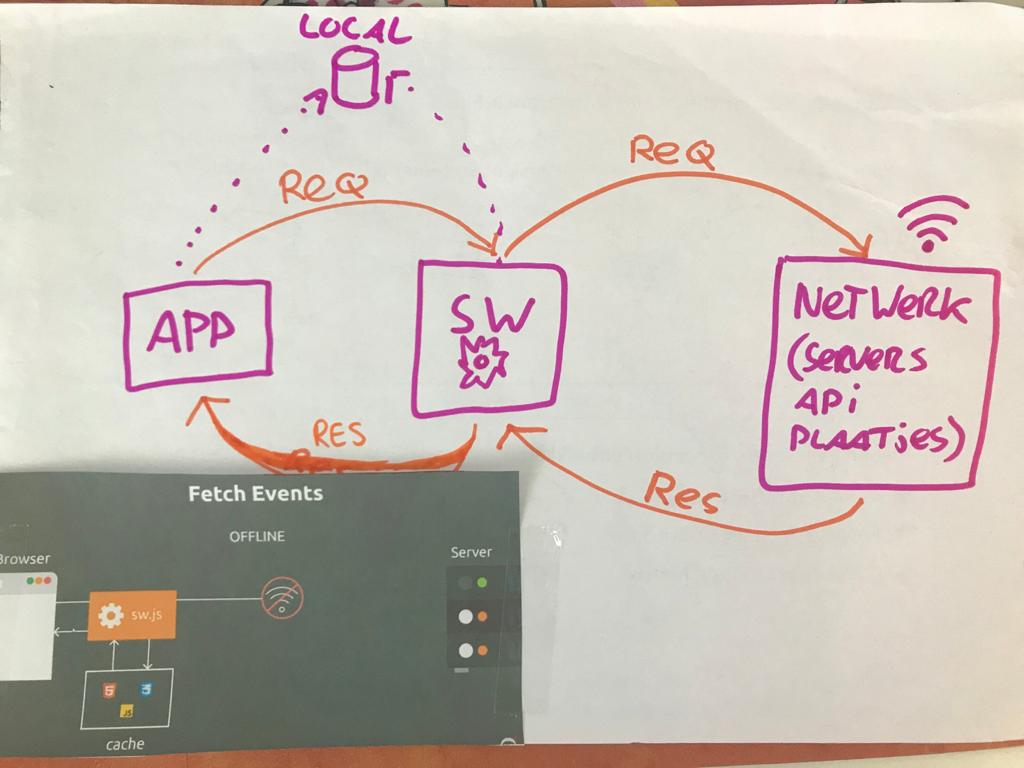 LOCAL
REQ
REQ
APP
SW
NETWERK
(SERVERS
API
PLAATJES)
RES
Res
Fetch Events
OFFLINE
Browser
Server
sw.js
5
3
JS
cache